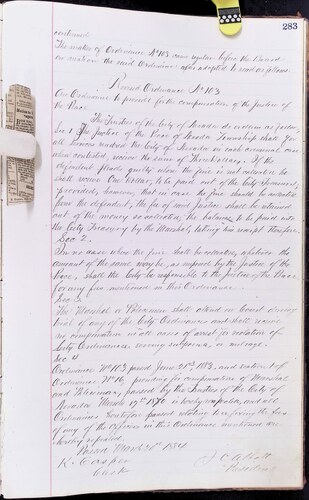 283
continued.
The matter of Ordinance No 103 came up
before the Board
on motion the said Ordinance was adopted to read as follows
Revised Ordinance No 103
An Ordinance to provide for the compensation of the Justice of
the Peace
The Trustees of the City of Nevada do ordain as follows,
Sec 1 The Justice of the Peace of Nevada Township shall for
all services rendered the City of Nevada in each criminal case
when contested, receive the sum of Three dollars, If the
defendant pleads guilty when the fine is not collected he
shall receive One dollar, to be paid out of the City Treasury,
provided, however, that in case the fine should be collected
from the defendant, the fee of said Justice shall be retained
out of the money so collected, the balance to be paid into
the City Treasury by the Marshal, taking his receipt therefor.
Sec 2.
In no case when the fine shall be collected, whatever the
amount of the same may be, as imposed by the Justice of the
Peace, shall the City be responsible to the Justice of the Peace
for any fees mentioned in this Ordinance.
Sec 3
The Marshal or Policeman shall attend on Court during
trial of any of the City Ordinances and shall receive
no compensation in all cases of arrest for violation of
City Ordinances, serving subpoenas, or mileage.
Sec 4
Ordinance No 103 passed June 21st, 1883, and section 1 of
Ordinance No 16, providing for compensation of Marshal
and Policeman, passed by the Trustees of the City of
Nevada March 19th 1878 is hereby repealed, and all
Ordinances heretofore passed relating to fixing the fees
of any of the officers in this Ordinance mentioned are
hereby repealed.
Passed March 20th 1884
K. Casper
Clerk
President